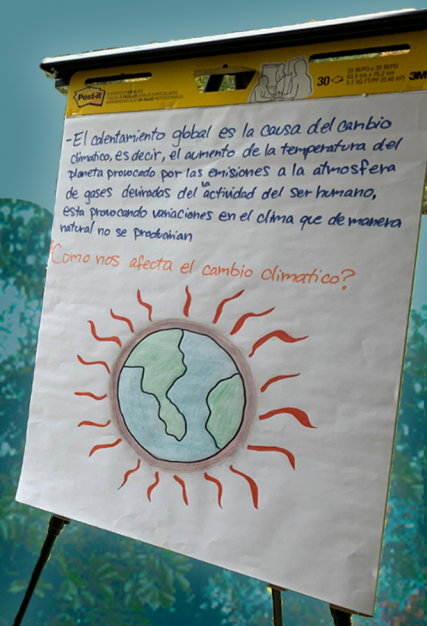 Post-it
30
3M
-El calentamiento global es la causa del cambio
climatico, es decir, el aumento de la temperatura del
planeta provocado por las emisiones a la atmosfera
de gases devirados de la actividad del ser humano,
esta provocando variaciones en el clima que de manera
natural no se producirian
¿Como nos afecta el cambio climatico?